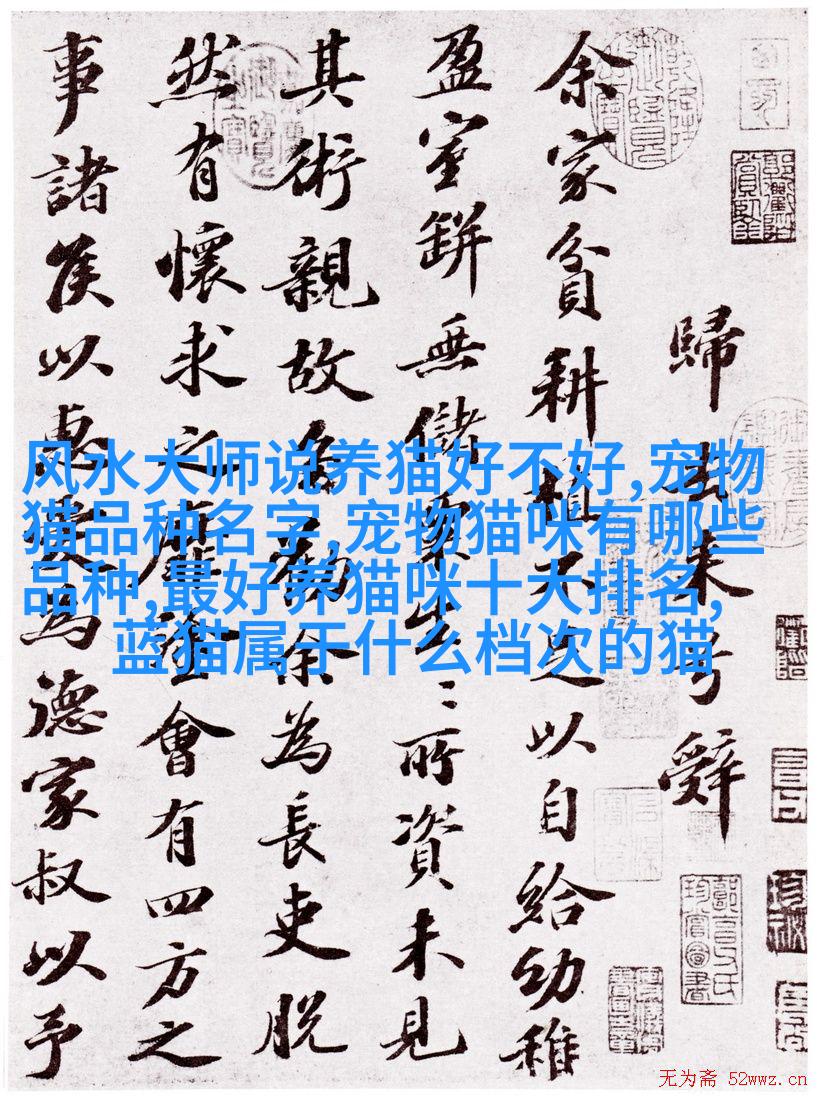 歸去来兮辭
余家貧耕植不足以自給幼稚
盈室缾無儲粟生〻所資未見
其術親故多勸余為長吏脱
然有懷求之靡途會有四方之
事諸侯以惠愛為德家叔以予
风水大师说养猫好不好,宠物
猫品种名字,宠物猫咪有哪些
品种,最好养猫咪十大排名,
蓝猫属于什么档次的猫
无为斋 52wwz.cn